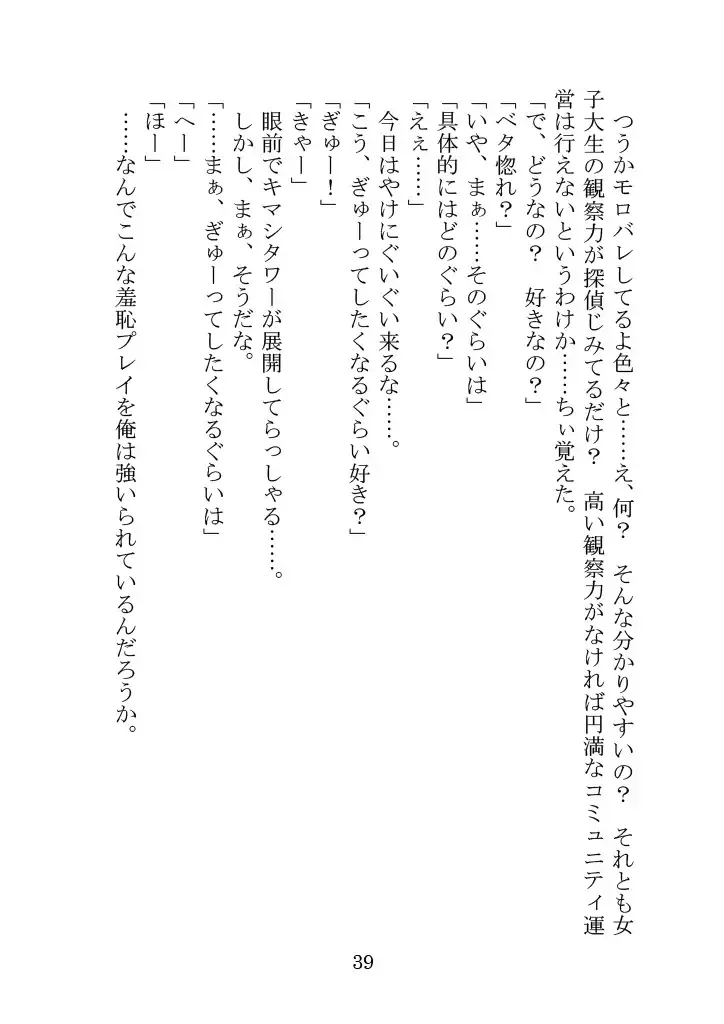 つうかモロバレしてるよ色々と……え、何？　そんな分かりやすいの？　それとも女
子大生の観察力が探偵じみてるだけ？　高い観察力がなければ円満なコミュニティ運
営は行えないというわけか……ちぃ覚えた。
「で、どうなの？　好きなの？」
「ベタ惚れ？」
「いや、まぁ……そのぐらいは」
「具体的にはどのぐらい？」
「えぇ……」
　今日はやけにぐいぐい来るな……。
「こう、ぎゅーってしたくなるぐらい好き？」
「ぎゅー！」
「きゃー」
　眼前でキマシタワーが展開してらっしゃる……。
　しかし、まぁ、そうだな。
「……まぁ、ぎゅーってしたくなるぐらいは」
「へー」
「ほー」
　……なんでこんな羞恥プレイを俺は強いられているんだろうか。
39